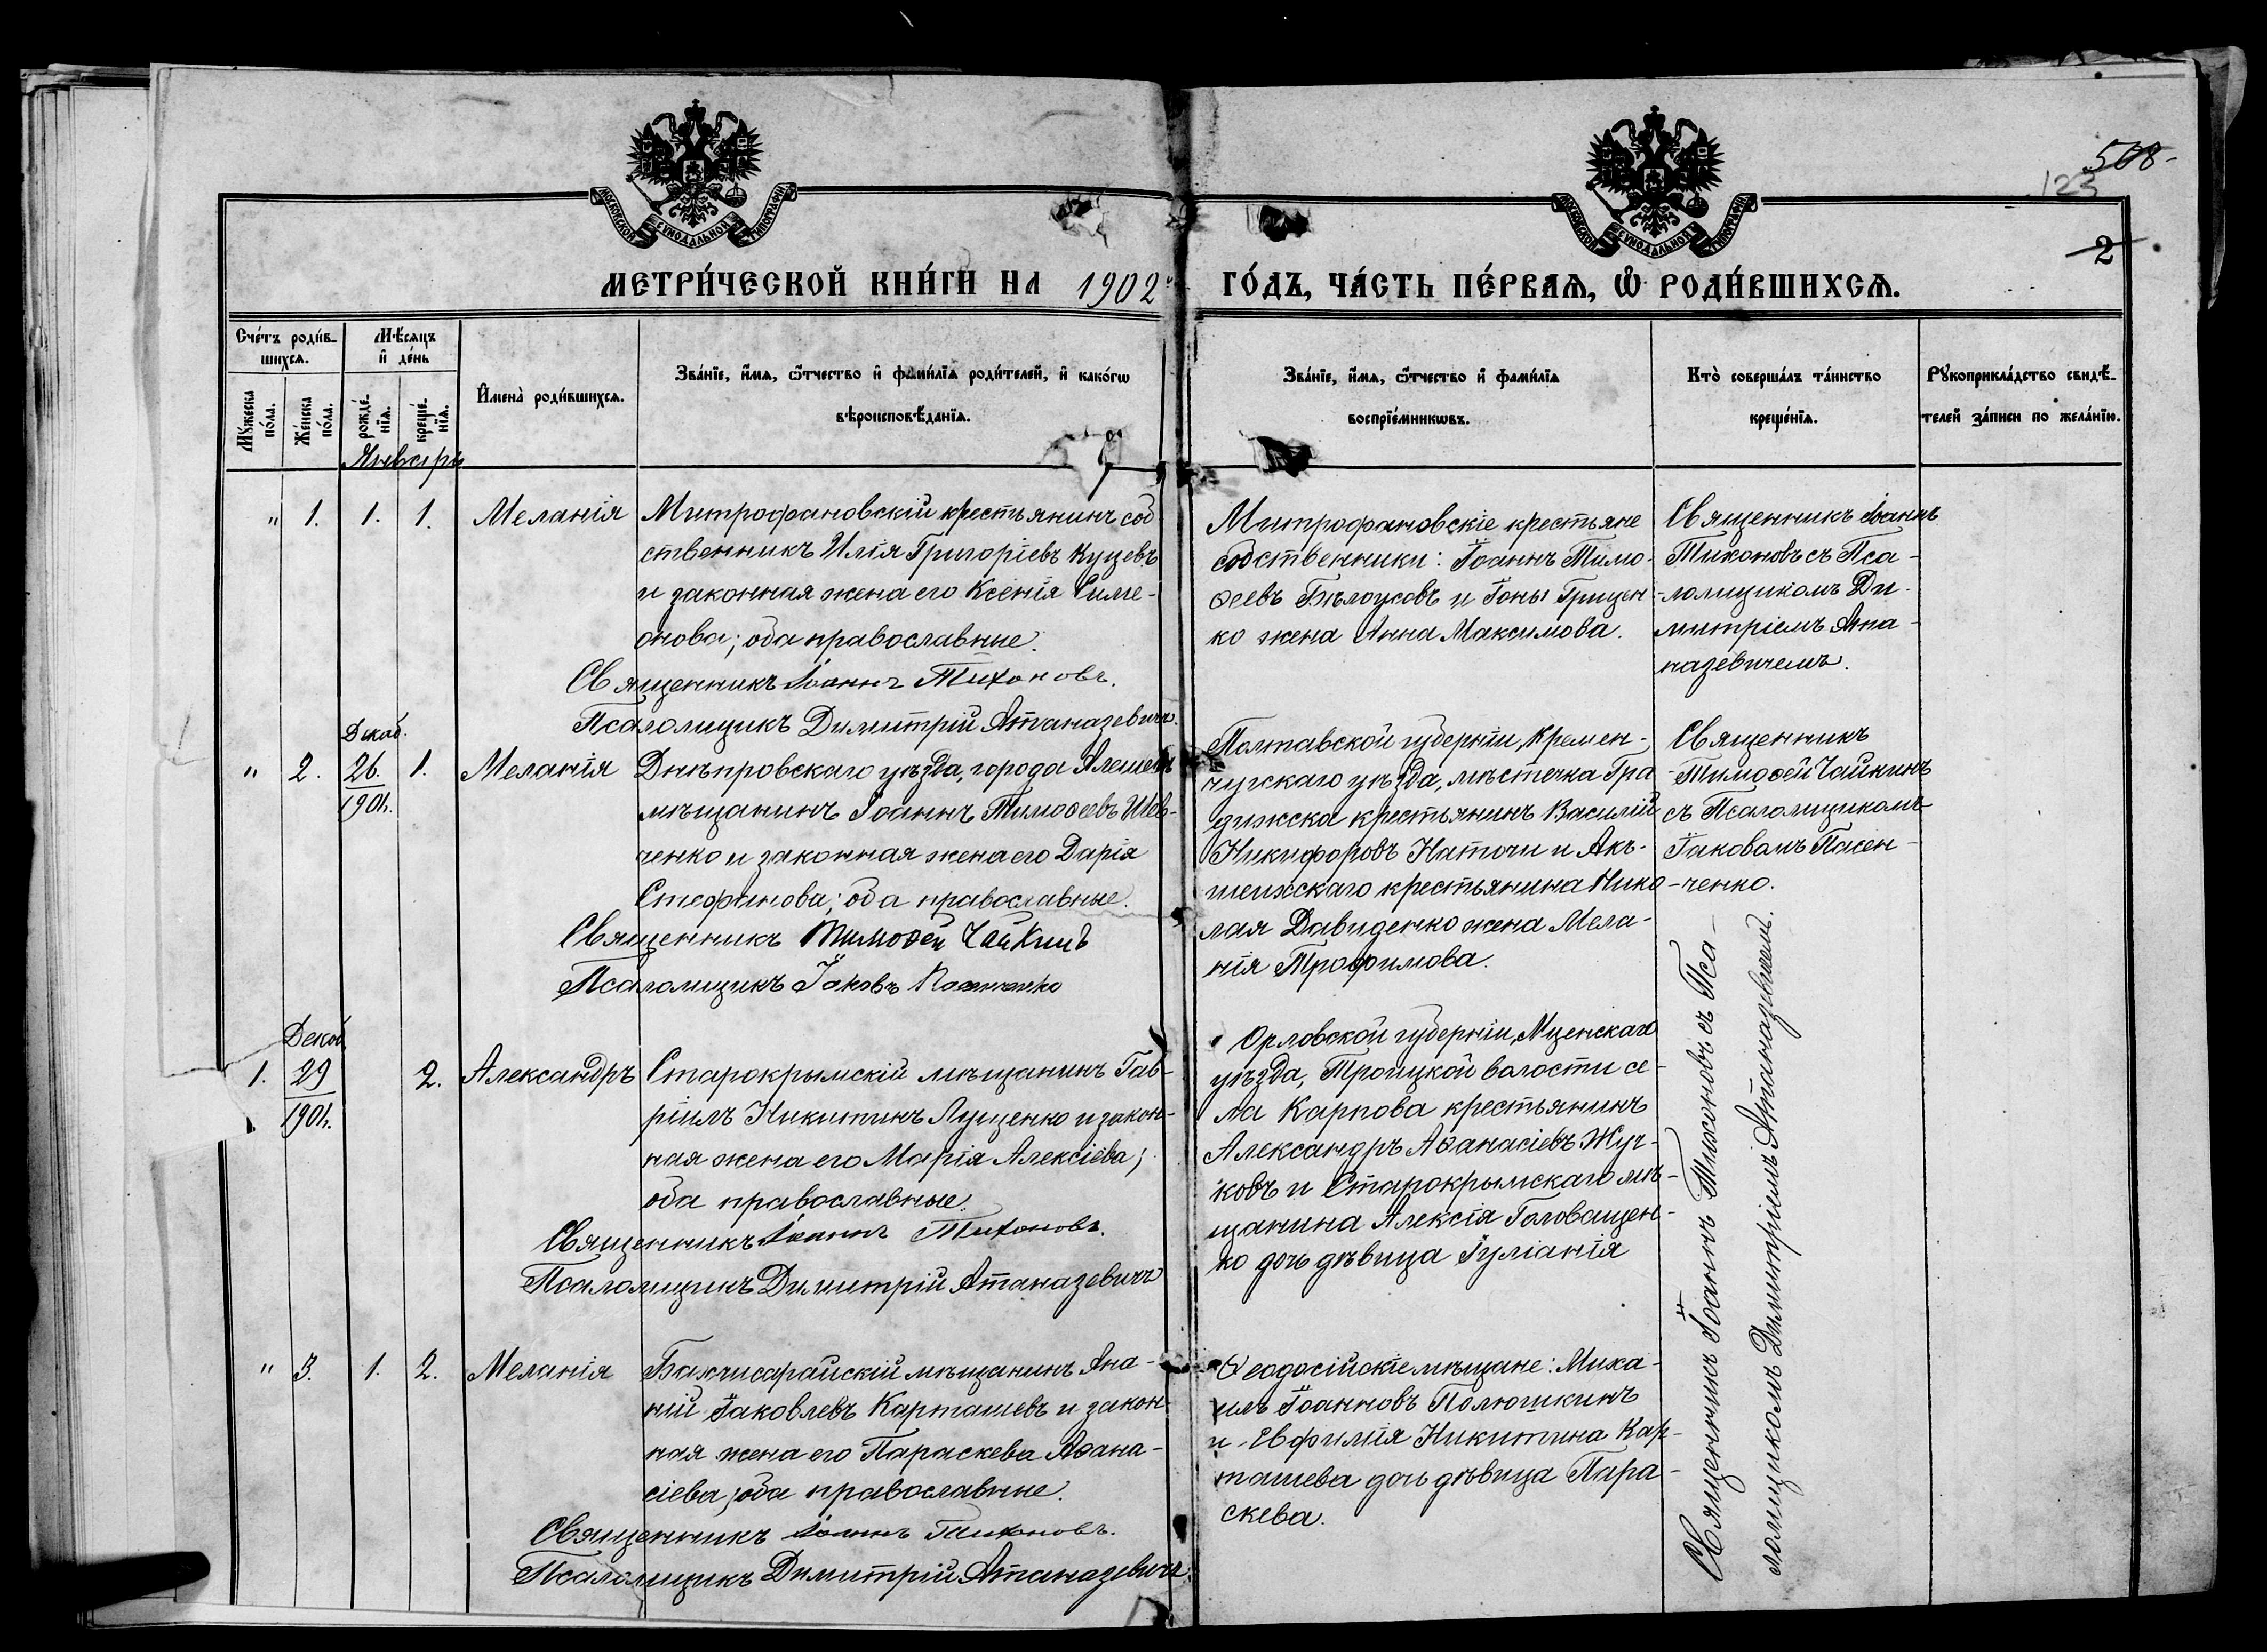 508-
123
2
МОСКОВСКОЙ СѴНОДАЛЬНОЙ ТИПОГРАФІИ
МОСКОВСКОЙ СѴНОДАЛЬНОЙ ТИПОГРАФІИ
МЕТРИ́ЧЕСКОЙ КНИ́ГИ НА 1902 ГО́ДЪ, ЧА́СТЬ ПЕ́РВАѦ, Ѡ РОДИ́ВШИХСѦ.
Сче́тъ роди́в-
шихсѧ.
Мꙋжеска по́ла.
Же́нска по́ла.
Мѣ́сѧцъ
и҆ де́нь
рожде́-
нїѧ.
креще́-
нїѧ.
И҆мена̀ роди́вшихсѧ.
Зва́нїе, и҆́мѧ, ѻ҆́тчество и҆ фами́лїѧ роди́телей, и҆ како́гѡ
вѣроисповѣ́данїѧ.
Зва́нїе, и҆́мѧ, ѻ҆́тчество и҆ фами́лїѧ
воспрїе́мникѡвъ.
Кто̀ соверша́лъ та́инство
креще́нїѧ.
Рꙋкоприкла́дство свидѣ́-
телей за́писи по жела́нїю.
Январь
" 1. 1. 1. Меланія
Митрофановскій крестьянинъ соб
ственникъ Илія Григоріевъ Куцевъ
и законная жена его Ксенія Симе-
онова; оба православные.
Священникъ Іоаннъ Тихоновъ.
Псаломщикъ Димитрій Атаназевичъ.
Митрофановскіе крестьяне
собственники: Іоаннъ Тимо-
ѳеевъ Бѣлоусовъ и Іоны Грицен-
ко жена Анна Максимова.
Священникъ Іоаннъ
Тихоновъ съ Пса-
ломщикомъ Ди-
митріемъ Ата-
назевичемъ.
Декаб.
" 2. 26. 1. Меланія
1901г.
Днѣпровскаго уѣзда, города Алешекъ
мѣщанинъ Іоаннъ Тимоѳеевъ Шев-
ченко и законная жена его Дарія
Стефанова; оба православные.
Священникъ Тимоѳей Чайкинъ
Псаломщикъ Іаковъ Пасенченко
Полтавской губерніи, Кремен-
чугскаго уѣзда, мѣстечка Гра
дижска крестьянинъ Василій
Никифоровъ Наточи и Акъ-
шеихскаго крестьянина Нико-
лая Давиденко жена Мела-
нія Трофимова.
Священникъ
Тимоѳей Чайкинъ
съ Псаломщикомъ
Іаковомъ Пасен-
ченко.
Декаб
1. 29 2. Александръ
1901г.
Старокрымскій мѣщанинъ Гав-
ріилъ Никитинъ Луценко и закон-
ная жена его Марія Алексіева;
оба православные.
Священникъ Іоаннъ Тихоновъ.
Псаломщикъ Димитрій Атаназевичъ
Орловской губерніи, Мценскаго
уѣзда, Троицкой волости се-
ла Карпова крестьянинъ
Александръ Аѳанасіевъ Жуч-
ковъ и Старокрымскаго мѣ-
щанина Алексія Головащен-
ко дочь дѣвица Іуліанія
" 3. 1. 2. Меланія
Бахчисарайскій мѣщанинъ Ана-
ній Іаковлевъ Карташевъ и закон-
ная жена его Параскева Аѳана-
сіева; оба православные.
Священникъ Іоаннъ Тихоновъ.
Псаломщикъ Димитрій Атаназевичъ.
Ѳеодосійскіе мѣщане: Миха-
илъ Іоанновъ Полюшкинъ
и Евфимія Никитина Кар-
ташева дочь дѣвица Пара-
скева.
Священникъ Іоаннъ Тихоновъ съ Пса-
ломщикомъ Димитріемъ Атаназевичемъ.